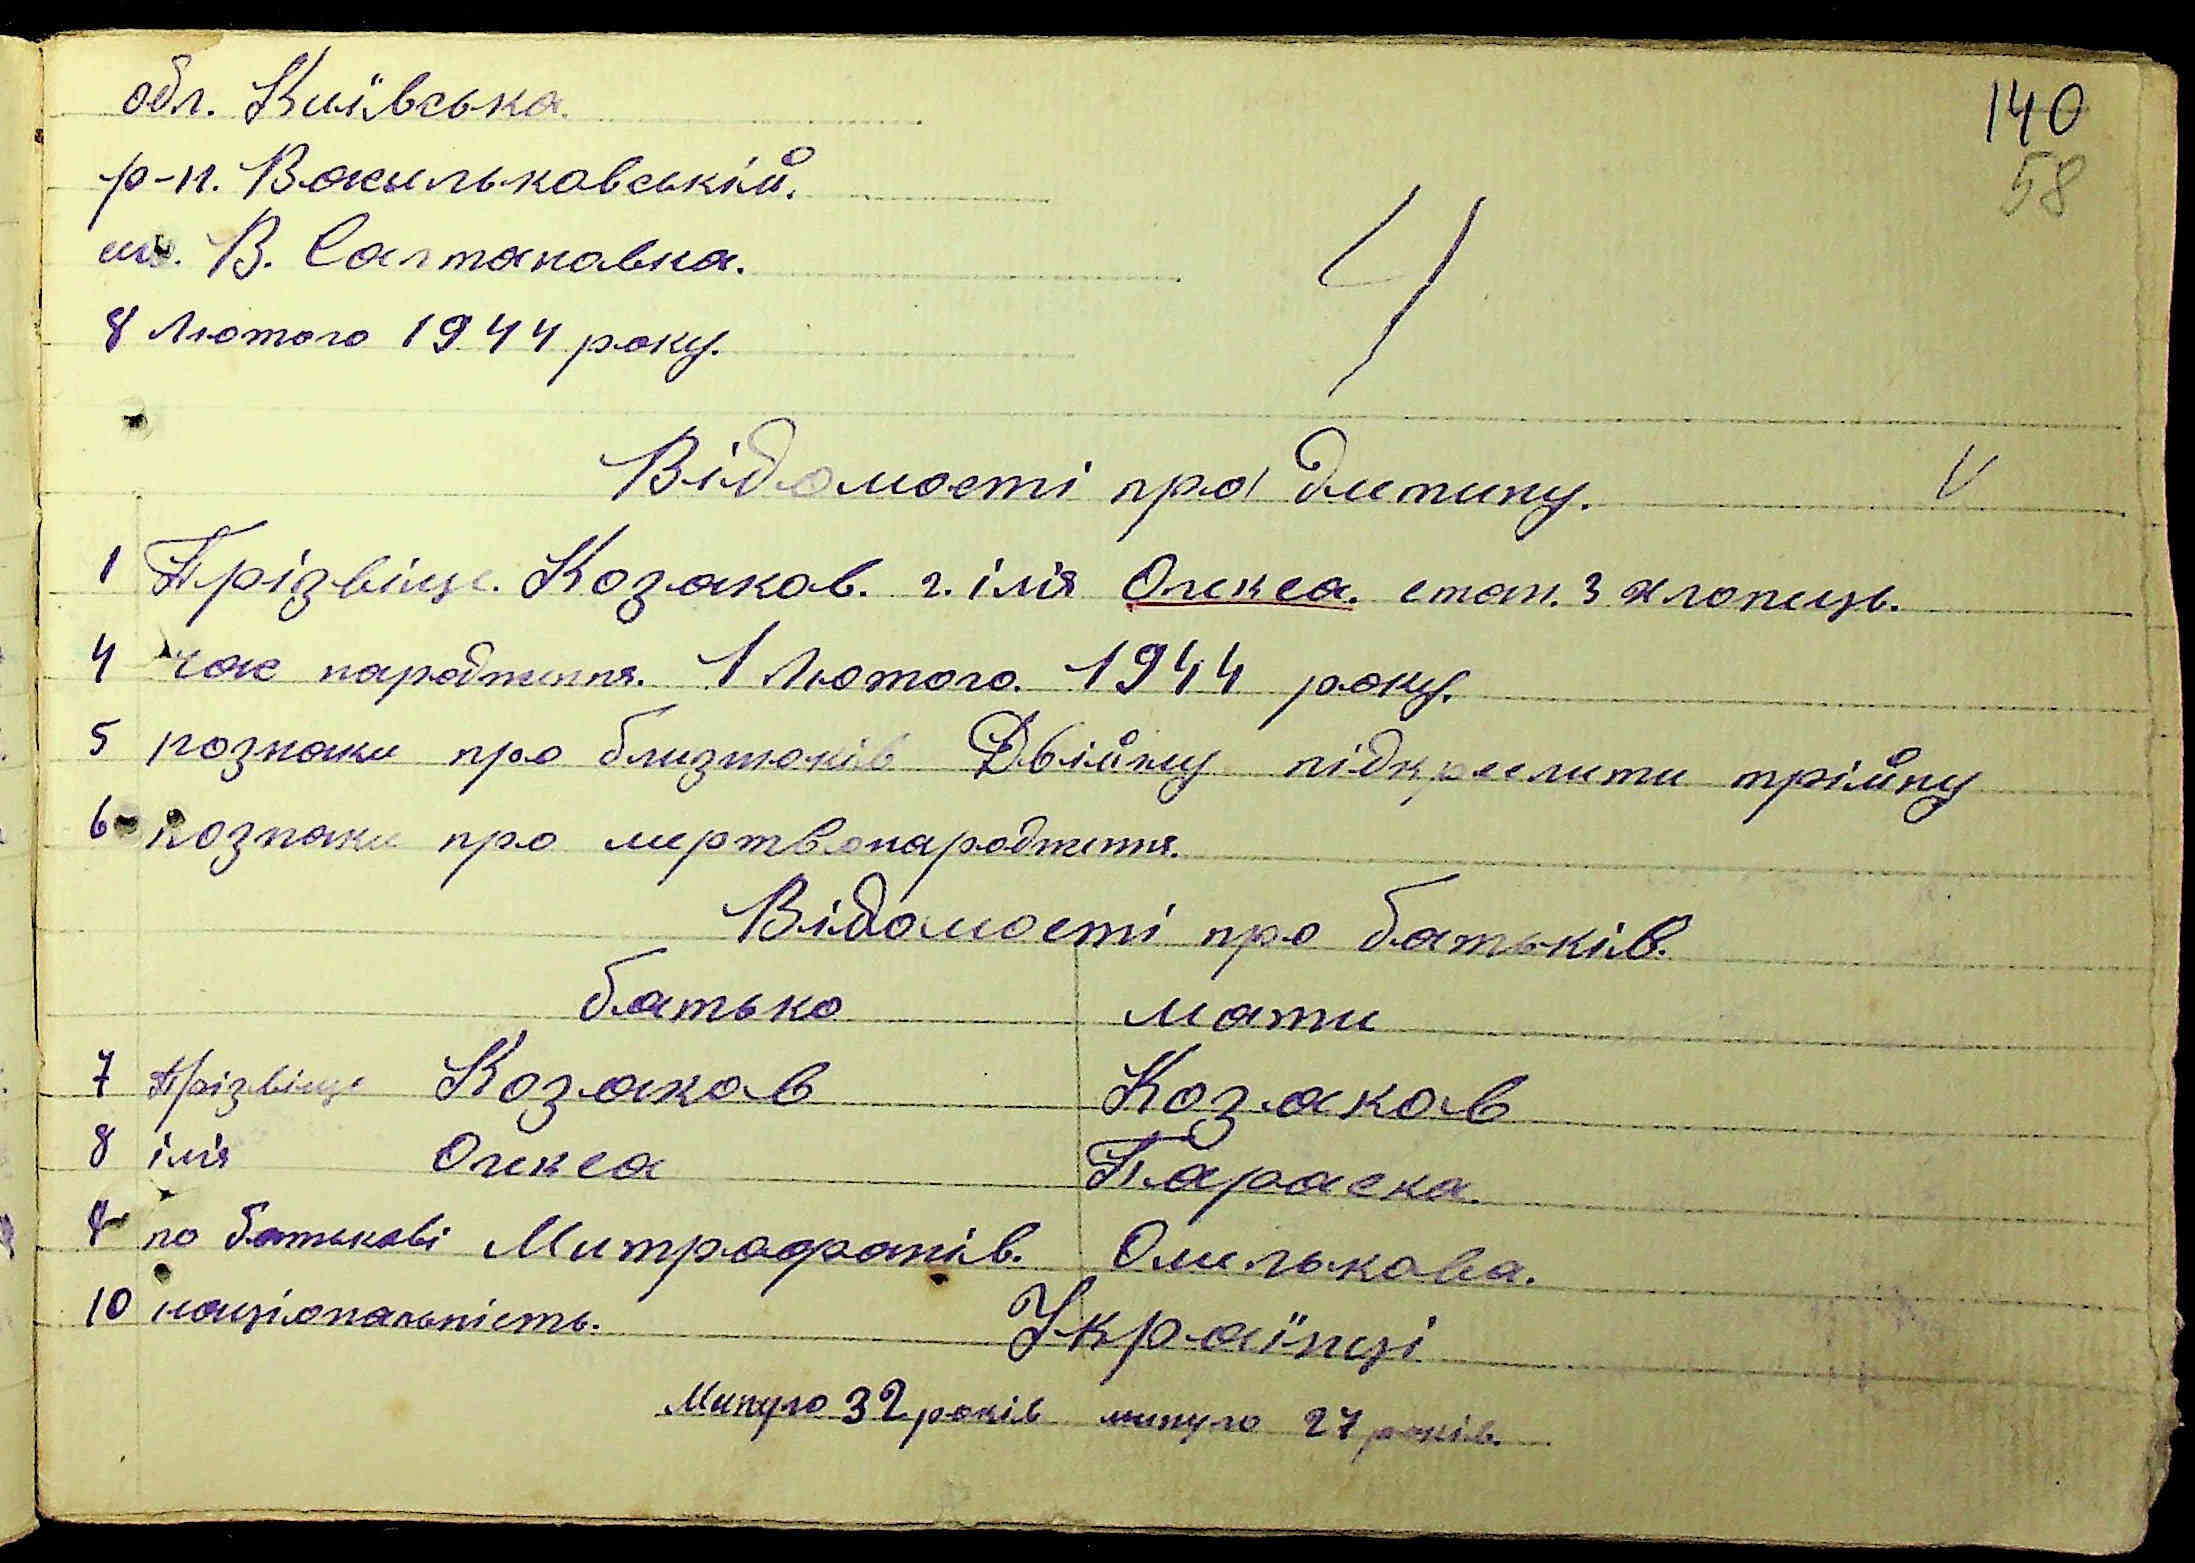 обл. Київська.
140
р-н. Васильковський.
58
В. Салтановка.
8 Лютого 1944 року.
4
Відомості про дитину.
V
1 Прізвіще. Козаков. 2. імя Олекса. стан. 3 хлопець.
4 час народження. 1 Лютого. 1944 року.
5 познаки про близнюків Двійну підкреслити трійну
6 познаки про мертвонародження.
Відомості про батьків.
батько мати
7 Прізвіще Козаков Козаков
8 імя Олекса Параска.
8 по батькові Митрофанів. Омелькова.
10 національність. Українці
Минуло 32 років минуло 27 років.